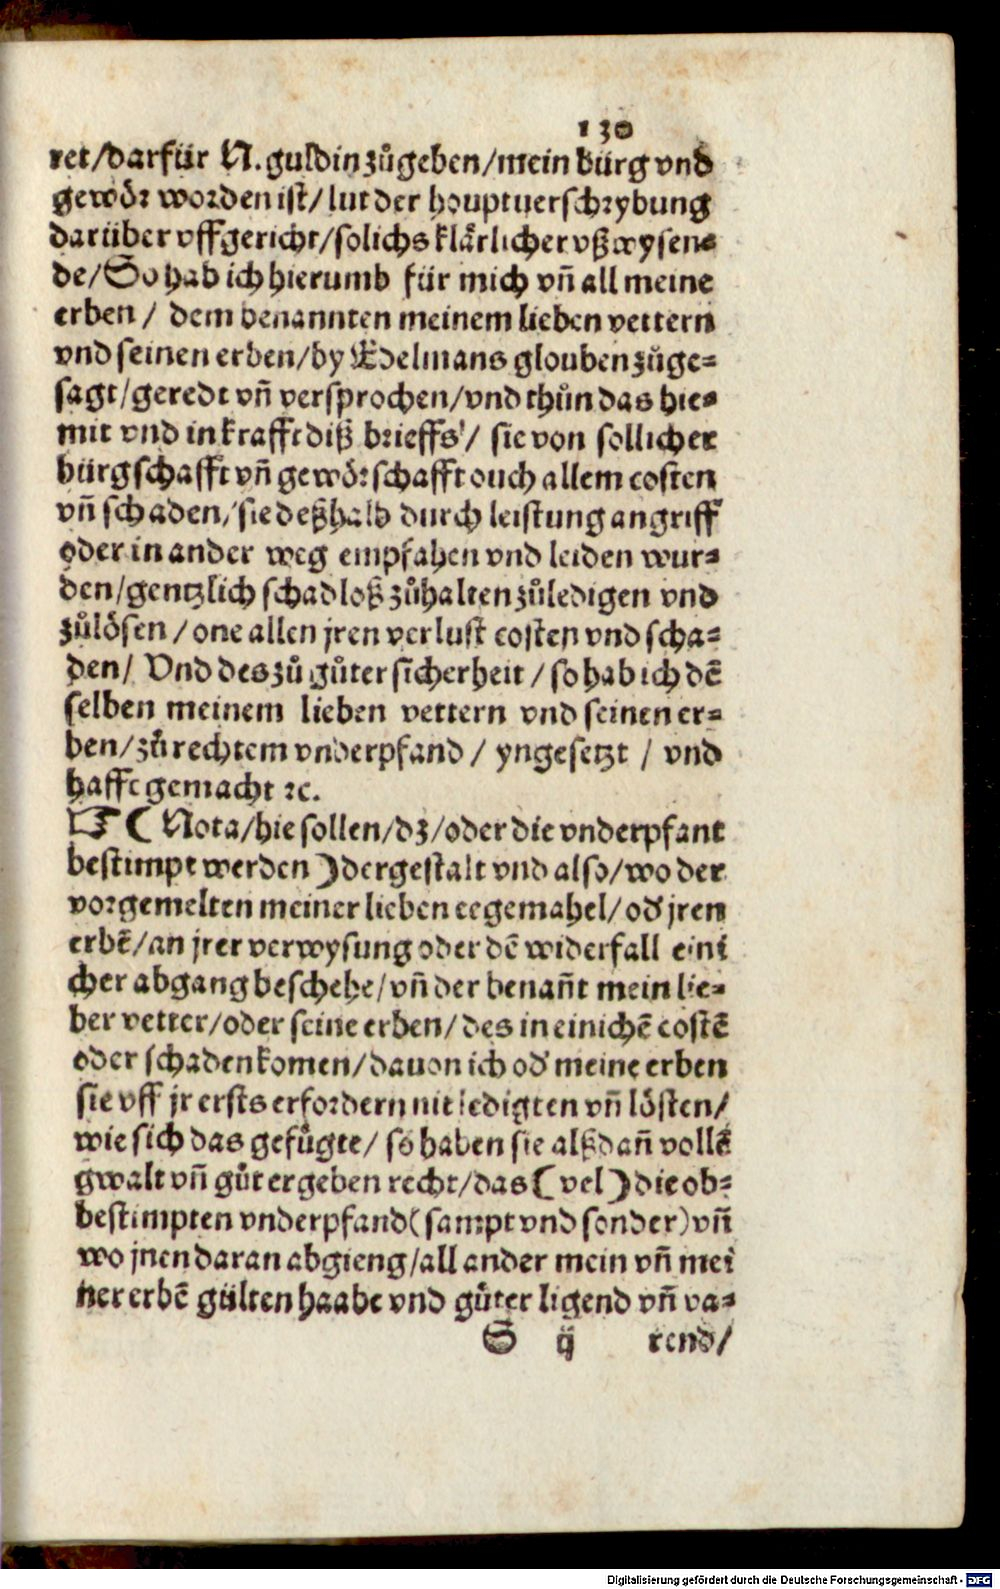 130
ret/darfür N. guldin zůgeben/mein bürg vnd
gewör worden ist/lut der houptuerschrybung
darüber vffgericht/solichs klärlicher vßwysen-
de/So hab ich hierumb für mich vñ all meine
erben / dem benannten meinem lieben vettern
vnd seinen erben/by Edelmans glouben zůge-
sagt/geredt vñ versprochen/vnd thůn das hie-
mit vnd in krafft diß brieffs/ sie von sollicher
bürgschafft vñ gewörschafft ouch allem costen
vñ schaden/sie deßhalb durch leistung angriff
oder in ander weg empfahen vnd leiden wur-
den/gentzlich schadloß zůhalten zůledigen vnd
zůlösen / one allen jren verlust costen vnd scha-
den/ Vnd des zů gůter sicherheit / so hab ich dē
selben meinem lieben vettern vnd seinen er-
ben/zů rechtem vnderpfand / yngesetzt / vnd
hafft gemacht ꝛc.
☞ ( Nota/hie sollen/dz/oder die vnderpfant
bestimpt werden ) dergestalt vnd also/wo der
vorgemelten meiner lieben eegemahel/od' jren
erbē/an jrer verwysung oder dē widerfall eini
cher abgang beschehe/vñ der benañt mein lie-
ber vetter/oder seine erben/des in einichē costē
oder schaden komen/dauon ich od' meine erben
sie vff jr ersts erfordern nit ledigten vñ lösten/
wie sich das gefůgte/ so haben sie alßdañ vollē
gwalt vñ gůt ergeben recht/das ( vel ) die ob-
bestimpten vnderpfand (sampt vnd sonder) vñ
wo jnen daran abgieng/all ander mein vñ mei
ner erbē gülten haabe vnd gůter ligend vñ va-
S ij rend/
Digitalisierung gefördert durch die Deutsche Forschungsgemeinschaft - DFG